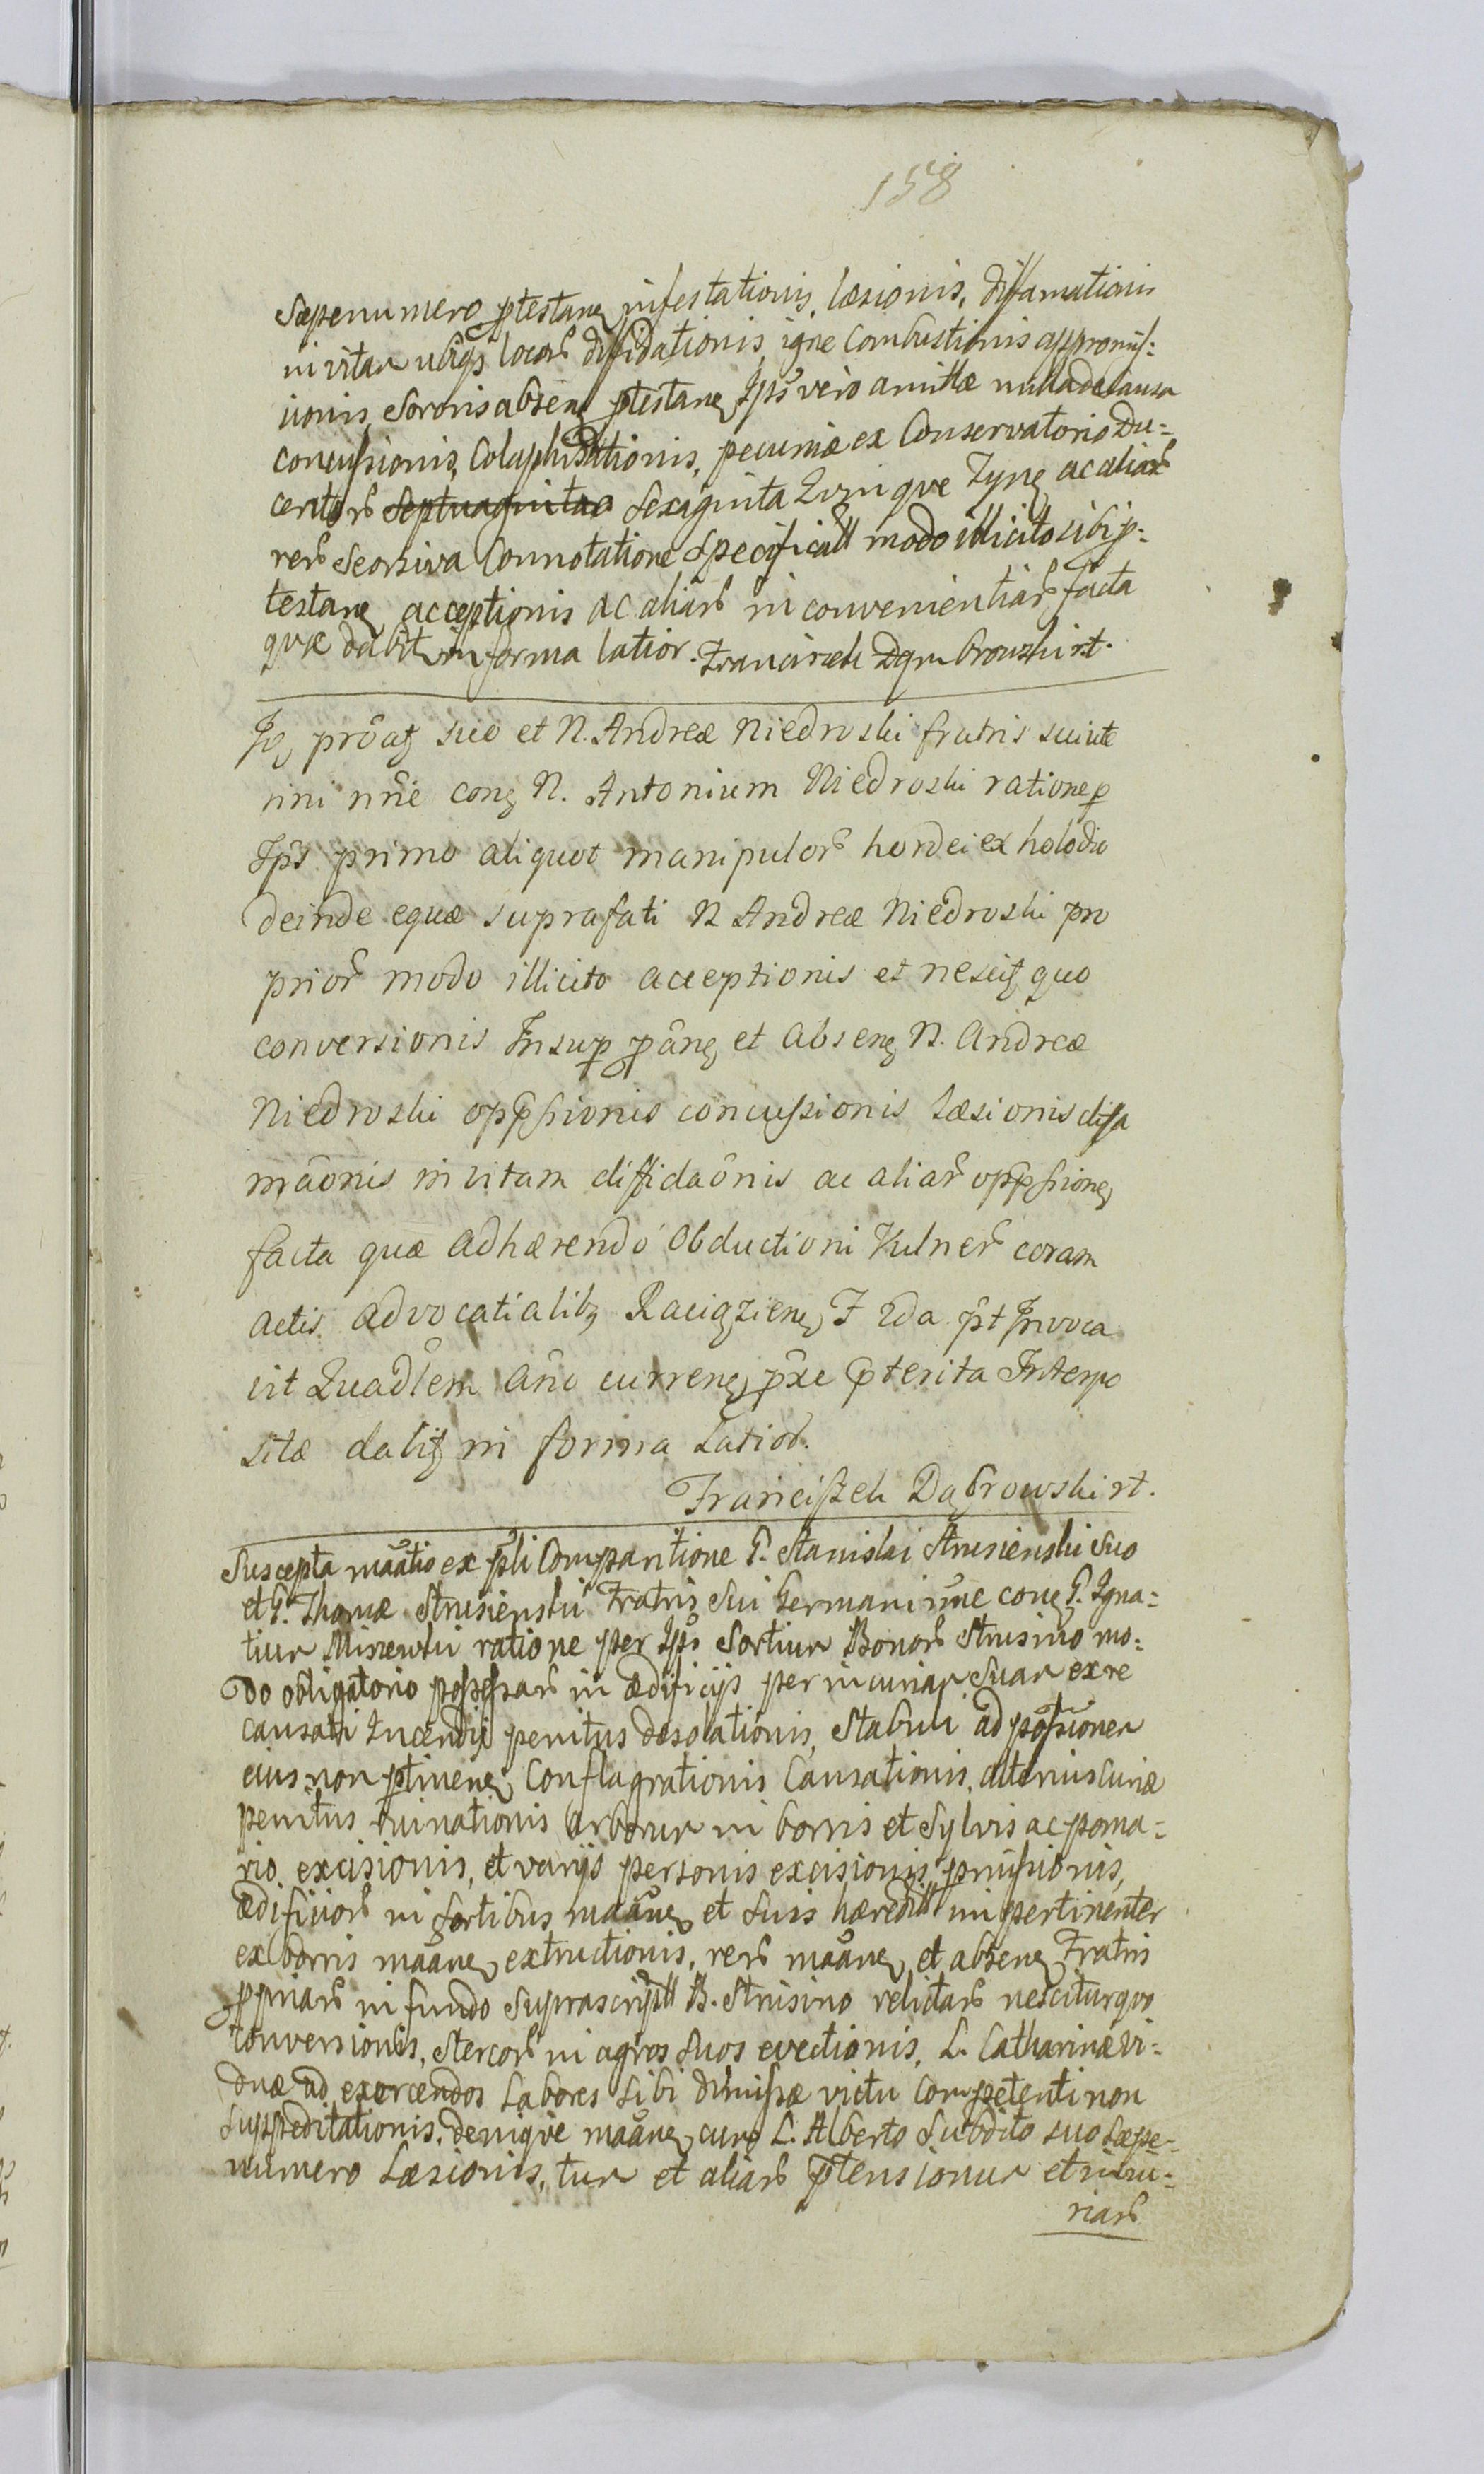 158
Sæpenumero ptestane infestationis, læsionis, diffamationis
in vitam ubiqs locorū diffidationis, igne combustionis appromis-
sionis, Sororis absene ptestane Ipsō vero amittæ nulla data causa
concussionis, Colaphisationis, pecuniæ ex Conservatorio Du-
centorū Septuaginta Sexaginta Quinque Tynf ac aliarū
rerū Seorsiva Connotatione Specificatt modo illicito sibi p-
testane acceptionis ac aliarū inconvenientiarū facta
quæ dabitr in forma latior. Franciszek Dąmbrowski rt.
Ip proatg suo et N. Andreæ Niedroski fratris sui ute
rini nne cong N. Antonium Niedroski ratione p
Ips primo aliquot manipulorū hordei ex holodio
deinde equæ suprafati N Andreæ Niedroski pro
priorū modo illicito acceptionis et nescitg quo
conversionis Insup pāng et Abseng N. Andreæ
Niedroski oppssionis concussionis Læsionis difa
māonis in vitam diffidaōnis ac aliarū oppssiong
facta quæ adhærendo obductioni Vulnerū coram
actis advocatialibg Raciązieng F 2da pt prvoca
vit Quadlem Ano curreng pxe pterita Interpo
sitæ dabitg in forma Latiorū.
Franciszek Dąbrowski rt.
Suscepta māatio ex pli Comparitione G. Stanislai Strusienski Suo
et G. Thomæ Strusienski Fratris Sui Germani nne cong G. Igna-
tium Minewski ratione per Ips Sortium Bonorū Strusino mo-
do obligatorio possessarū in ædificijs per incuriam Suam ex re
causati Incendij penitus desolationis, Stabuli ad possionem
eius non ptineng Conflagrationis Causationis, alterius Curiæ
penitus ruinationis Arborum in borris et Sylvis ac poma-
rio excisionis, et varijs personis excisionis pmissionis,
ædificiorū in Sortibus maāng et Suis hæreditt impertinenter
ex borris maāng extructionis, rerū maāng et abseng Fratris
ppriarū in fundo Suprascriptt B. Strusino relictarū nescitur quo
conversionis, stercorū in agros suos evectionis, L. Catharinæ Vi-
duæ ad exercendos Labores Sibi dimissæ victu competenti non
Suppeditationis, denique maāng cum L. Alberto Subdito suo Sæpe-
numero Læsionis, tum et aliarū ptensionum et iniu-
riarū